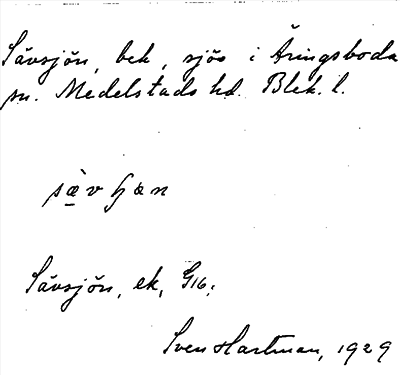 Sävsjön, bek, sjös i Äringsboda
sn. Medelstads hd. Blek. l.
sæ̀vɧæn
Sävsjön, ek, G16;
Sven Hartman, 1929